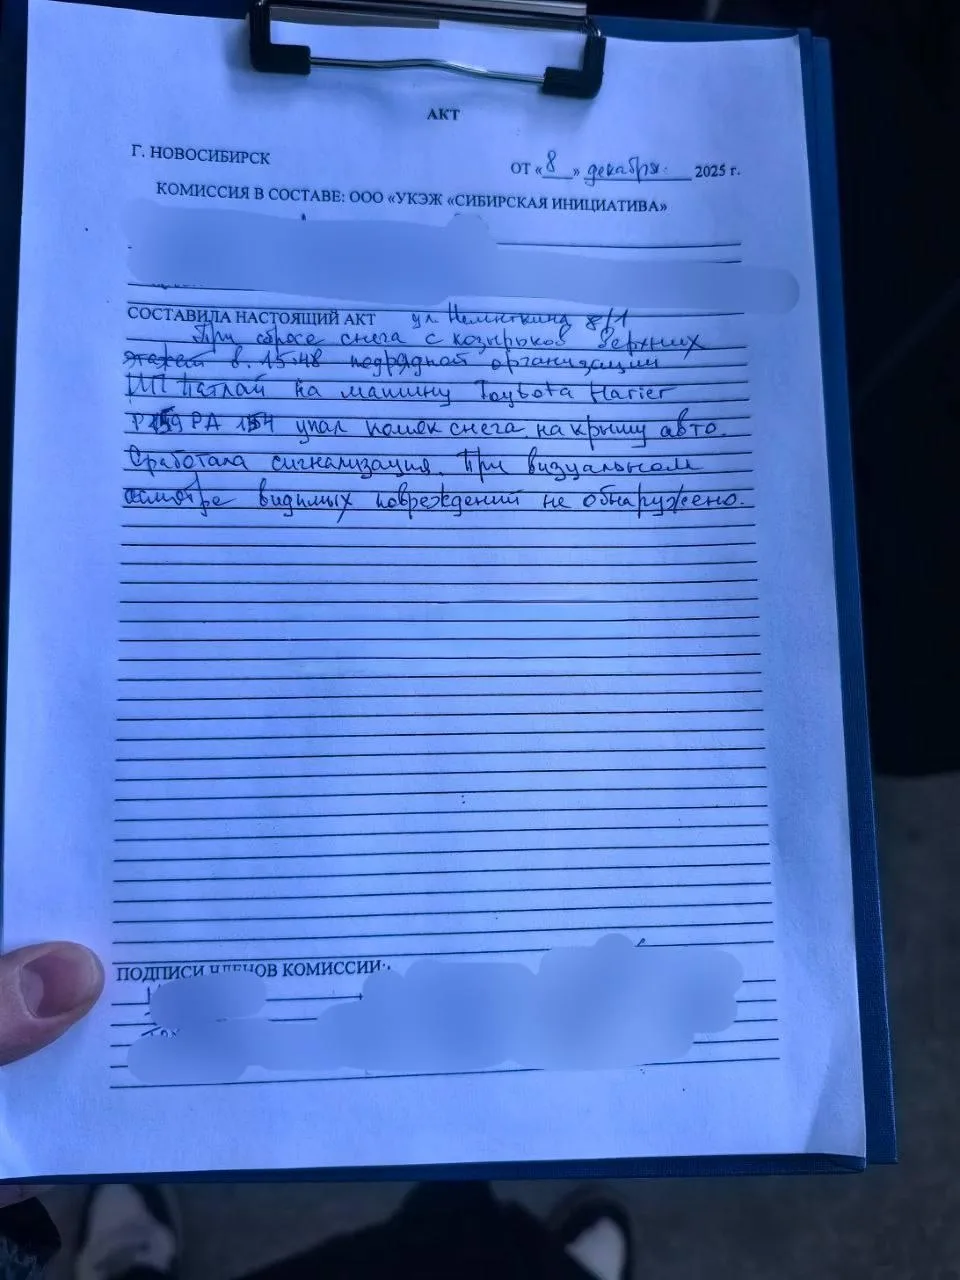 АКТ
Г. НОВОСИБИРСК
ОТ «8» декабря 2025 г.
КОМИССИЯ В СОСТАВЕ: ООО «УКЭЖ «СИБИРСКАЯ ИНИЦИАТИВА»
СОСТАВИЛА НАСТОЯЩИЙ АКТ ул 8/1
При сбросе снега с козырьков верхних
этажей в 15:48 подрядной организации
ИП на машину Toybota Harier
РА упал комок снега на крышу авто.
Сработала сигнализация. При визуальном
осмотре видимых повреждений не обнаружено.
ПОДПИСИ ЧЛЕНОВ КОМИССИИ: